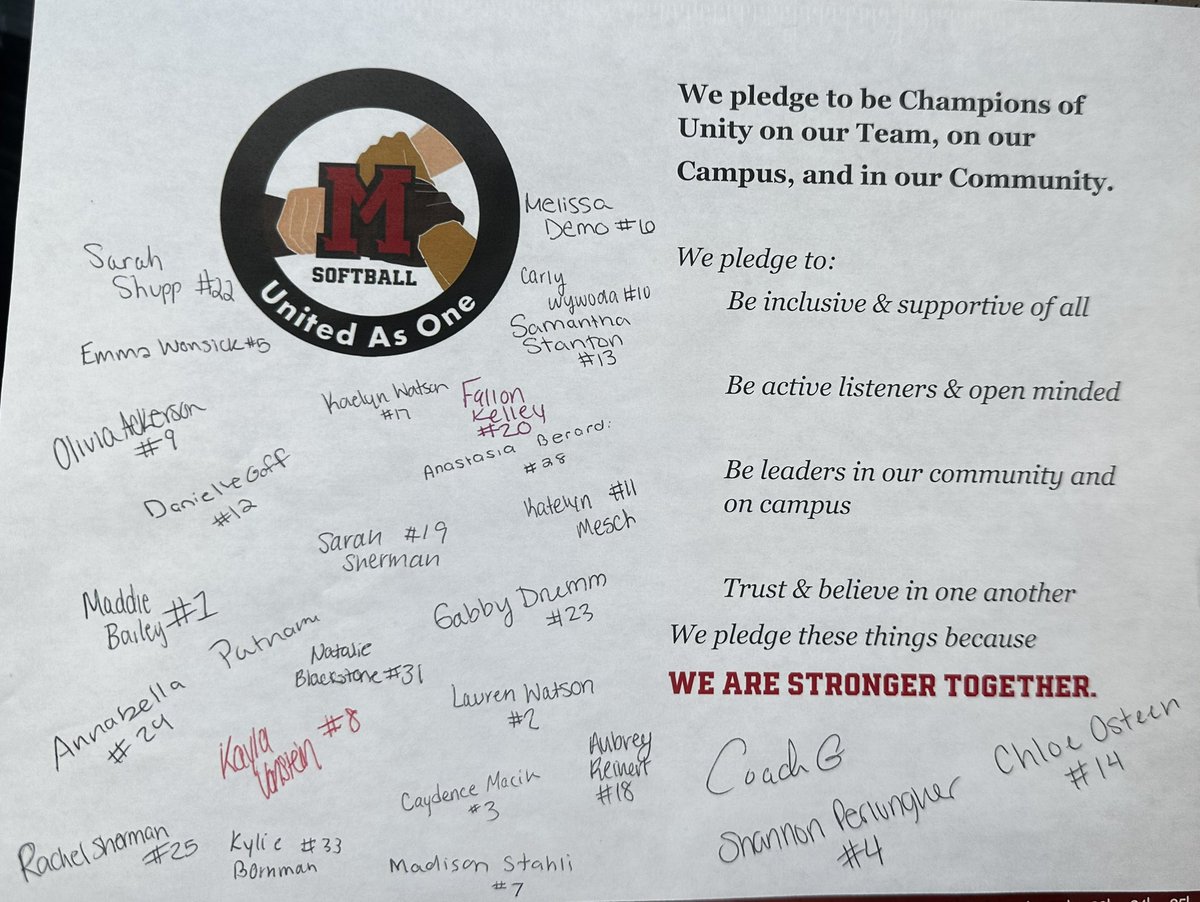 We pledge to be Champions of
Unity on our Team, on our
Campus, and in our Community.
We pledge to:
Be inclusive & supportive of all
Be active listeners & open minded
Be leaders in our community and
on campus
Trust & believe in one another
We pledge these things because
WE ARE STRONGER TOGETHER.
M
SOFTBALL
United As One
Melissa
Demo #16
Sarah
Shupp #22
Carly
Wywoda #10
Samantha
Stanton
#13
Emma Wonsick #5
Kaelyn Watson
#17
Fallon
Kelley
#20
Olivia Ackerson
#9
Anastasia Berardi
#28
Danielle Goff
#12
Katelyn #11
Mesch
Sarah #19
Sherman
Maddie
Bailey #1
Gabby Drumm
#23
Annabella Putnam
#24
Natalie
Blackstone #31
Lauren Watson
#2
Kayla
#8
Aubrey
Reinert
#18
Caydence Macik
#3
Coach G
Chloe Osteen
#14
Shannon Perlungher
#4
Rachel Sherman
#25
Kylie #33
Bornman
Madison Stahli
#7